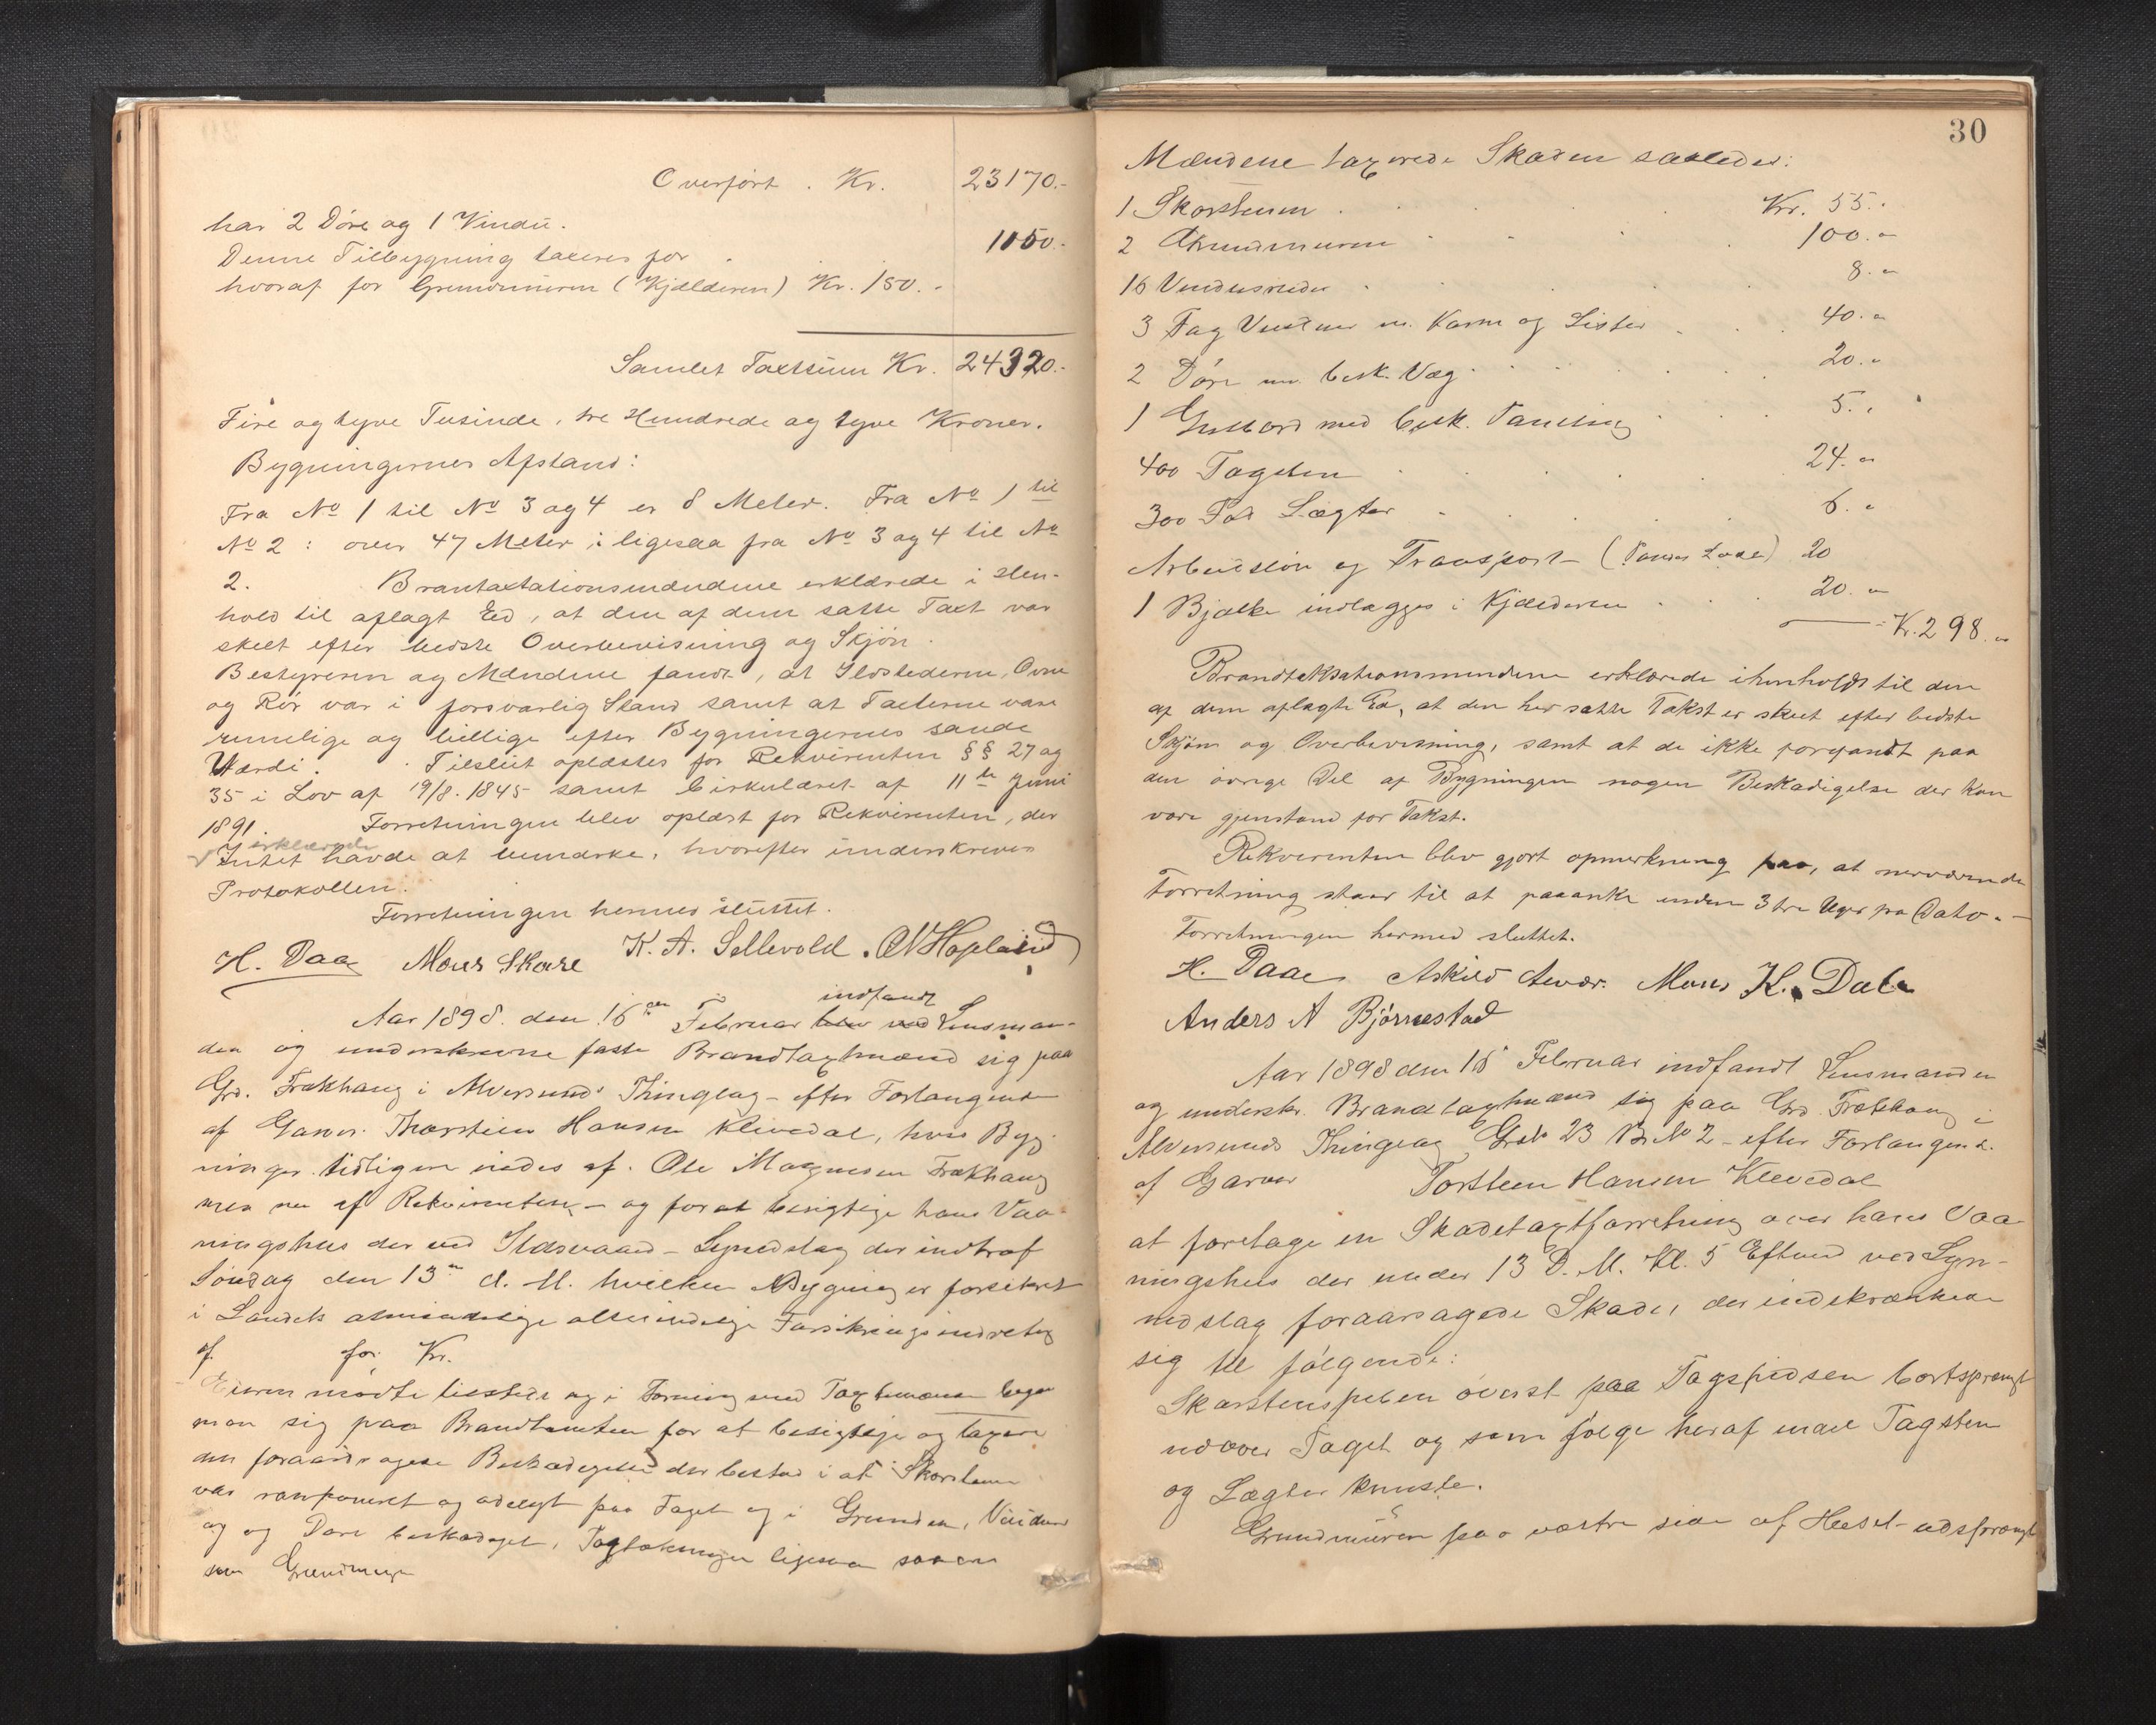 Overført . Kr. 23170.-
har 2 Døre og 1 Vindu.
Denne Tilbygning taxeres for . 1150.-
hvoraf for Grundmuren (Kjælderen) Kr. 150.-
Samlet Taxtsum Kr. 24320.-
Fire og tyve Tusinde, tre Hundrede og tyve Kroner.
Bygningernes Afstand:
Fra No 1 til No 3 og 4 er 8 Meter. Fra No 1 til
No 2 : over 47 Meter; ligesaa fra No 3 og 4 til No
2. Brantaxtationsmændene erklærede i Hen-
hold til aflagt Ed, at den af dem satte Taxt var
skeet efter bedste Overbevisning og Skjøn.
Bestyreren og Mændene fandt, at Ildstederne, Ovne
og Rør var i forsvarlig Stand samt at Taxterne vare
rimelige og billige efter Bygningernes sande
Værdi. Tilslut oplæstes for Rekvirenten §§ 27 og
35 i Lov af 19/8. 1845 samt Cirkulæret af 11te Juni
1891. Forretningen blev oplæst for Rekvirenten, der
erklærede
Intet havde at bemærke, hvorefter underskreves
Protokollen.
Forretningen hermed sluttet.
H. Daae Mons Skare K. A. Sellevold. O N Hopland
indfandt
Aar 1898. den 16de Februar blev ved Lensman-
den og underskrevne faste Brandtaxtmænd sig paa
Grd. Frækhaug i Alversunds Thinglag - efter Forlangende
af Garver Thorstein Hansen Klevedal, hvis Byg-
ninger tidligere eiedes af Ole Magnesen Frækhaug
men nu af Rekvirenten - og for at besigtige hans Vaa-
ningshus der ved Ildsvaade - Lynedslag der indtraf
Søndag den 13de d. M. hvilken Bygning er forsikret
i Landets almindelige Forsikringsindretning
af for Kr.
Eieren mødte tilstede og i Forening med Taxtmændene begav
man sig paa Brandtomten for at besigtige og taxere
den foraarsagede Beskadigelse der bestod i at Skorstenen
var ramponeret og ødelagt paa Taget og i Grunden, Vinduer
og Døre beskadiget, Tagtækningen ligesaa
som Grundmuren
30
Mændene taxerede Skaden saaledes:
1 Skorstenen Kr. 55.
2 Grundmuren 100.
16 Vindusruder 8.
3 Fag Vinduer m. Karm og Lister 40.
2 Døre m. besk. Væg 20.
1 med besk. Paneling 5.
400 Tagsten 24.
300 Fod Lægter 6.
Arbeidsløn og Transport 20
1 Bjælke indlægges i Kjælderen 20.
Kr. 298.
Brandtaksationsmændene erklærede ihenhold til den
af dem aflagte Ed, at den her satte Takst er skeet efter bedste
Skjøn og Overbevisning, samt at de ikke forefandt paa
den øvrige Del af Bygningen nogen Beskadigelse der kan
være gjenstand for Takst.
Rekvirenten blev gjort opmerksom paa, at nærværende
Forretning staar til at paaanke inden 3 tre Uger fra Dato. -
Forretningen hermed sluttet.
H. Daae Askild Mons K. Dale
Anders A Bjørnestad
Aar 1898 den 16 Februar indfandt Lensmanden
og underskr. Brandtaxtmænd sig paa Grd. Frækhaug i
Alversunds Thinglag Grdn 23 Br No 2 - efter Forlangende
af Garver Torsteen Hansen Klevedal
at foretage en Skadetaxtforretning over hans Vaa-
ningshus der under 13 D. M. Kl. 5 Eftmd ved Lyn-
nedslag foraarsagede Skade, der indskrænkede
sig til følgende:
Skorstenspiben øverst paa Tagspidsen bortsprængt
udover Taget og som følge heraf endel Tagsten
og Lægter knuste.
Grundmuren paa vestre side af Huset udsprængt